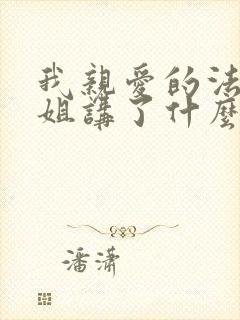 我親愛的法
姐講了什麼
潘瀟